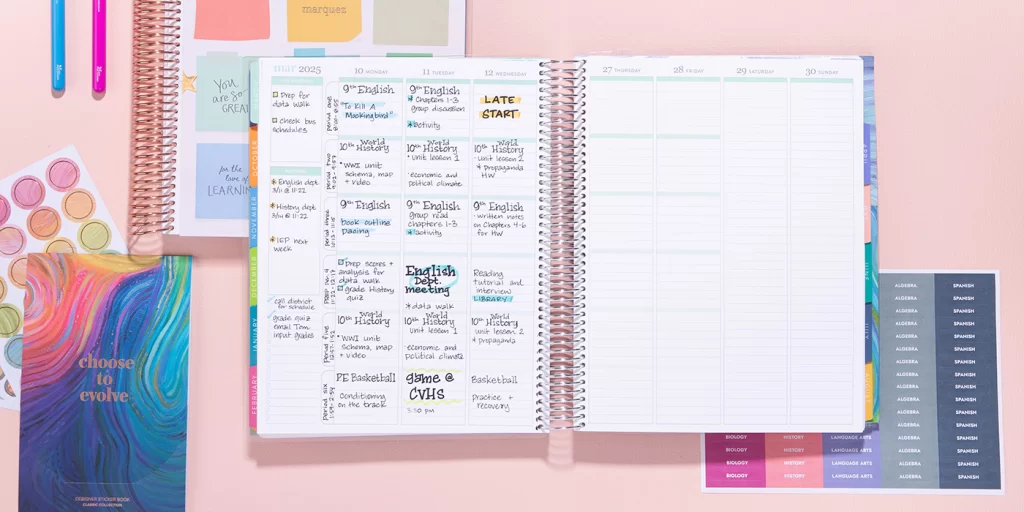 marquez
You
are so
GREAT
for the
love of
LEARNING
mar 2025
Prep for
data walk
check bus
schedules
English dept.
3/11 @ 11:22
History dept
3/14 @ 11:22
IEP next
week
call district
for schedule
grade quiz
email Tom
input grades
10 MONDAY
period one
9th English
"To Kill A
Mockingbird"
period two
10th World
History
WWI unit
schema, map
+ video
period three
9th English
book outline
pacing
Prep scores +
analysis for
data walk
grade History
quiz
period five
10th World
History
WWI unit
schema, map
+ video
period six
PE Basketball
Conditioning
on the track
11 TUESDAY
9th English
Chapters 1-3
group discussion
*activity
10th World
History
unit lesson 1
economic and
political climate
9th English
group read
chapters 1-3
* activity
English
Dept.
meeting
* data walk
10th World
History
unit lesson 1
economic and
political climate
game @
CVHS
3:30 pm
12 WEDNESDAY
LATE
START
10th World
History
unit lesson 2
* propaganda
HW
9th English
written notes
on Chapters 4-6
for HW
Reading
tutorial and
interview
LIBRARY!
10th World
History
unit lesson 2
* propaganda
Basketball
practice +
recovery
27 THURSDAY
28 FRIDAY
29 SATURDAY
30 SUNDAY
OCTOBER
NOVEMBER
DECEMBER
JANUARY
FEBRUARY
choose
to
evolve
EDESIGNER STICKER BOOK
CLASSIC COLLECTION
ALGEBRA SPANISH
ALGEBRA SPANISH
ALGEBRA SPANISH
ALGEBRA SPANISH
ALGEBRA SPANISH
ALGEBRA SPANISH
ALGEBRA SPANISH
ALGEBRA SPANISH
ALGEBRA SPANISH
ALGEBRA SPANISH
ALGEBRA SPANISH
ALGEBRA SPANISH
BIOLOGY HISTORY LANGUAGE ARTS ALGEBRA SPANISH
BIOLOGY HISTORY LANGUAGE ARTS ALGEBRA SPANISH
BIOLOGY HISTORY LANGUAGE ARTS ALGEBRA SPANISH
BIOLOGY HISTORY LANGUAGE ARTS ALGEBRA SPANISH